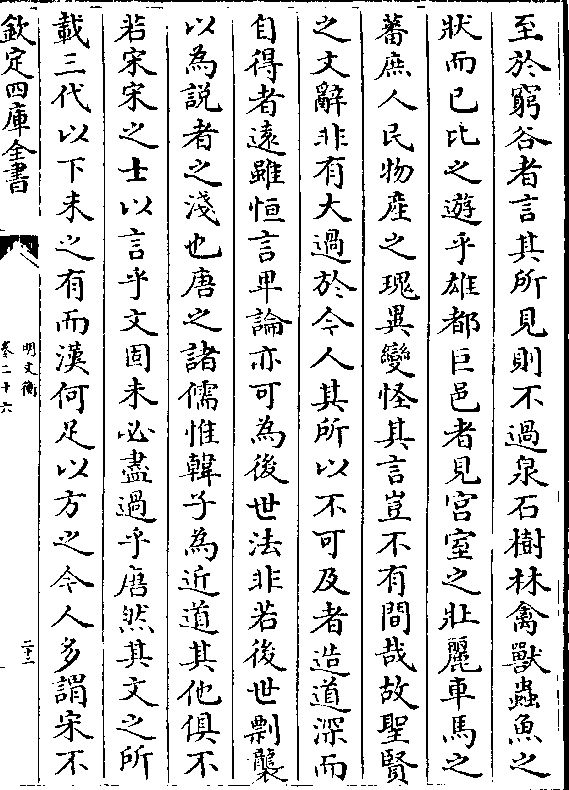 至於窮谷者言其所見則不過泉石樹林禽獸蟲魚之
狀而已比之遊乎雄都巨邑者見宮室之壯麗車馬之
蕃庶人民物産之瑰異變怪其言豈不有間哉故聖賢
之文辭非有大過於今人其所以不可及者造道深而
自得者遠雖恒言卑論亦可為後世法非若後世剽襲
以為説者之淺也唐之諸儒惟韓子為近道其他俱不
若宋宋之士以言乎文固未必盡過乎唐然其文之所
載三代以下未之有而漢何足以方之今人多謂宋不
欽定四庫全書
明文衡
卷二十六
二十三